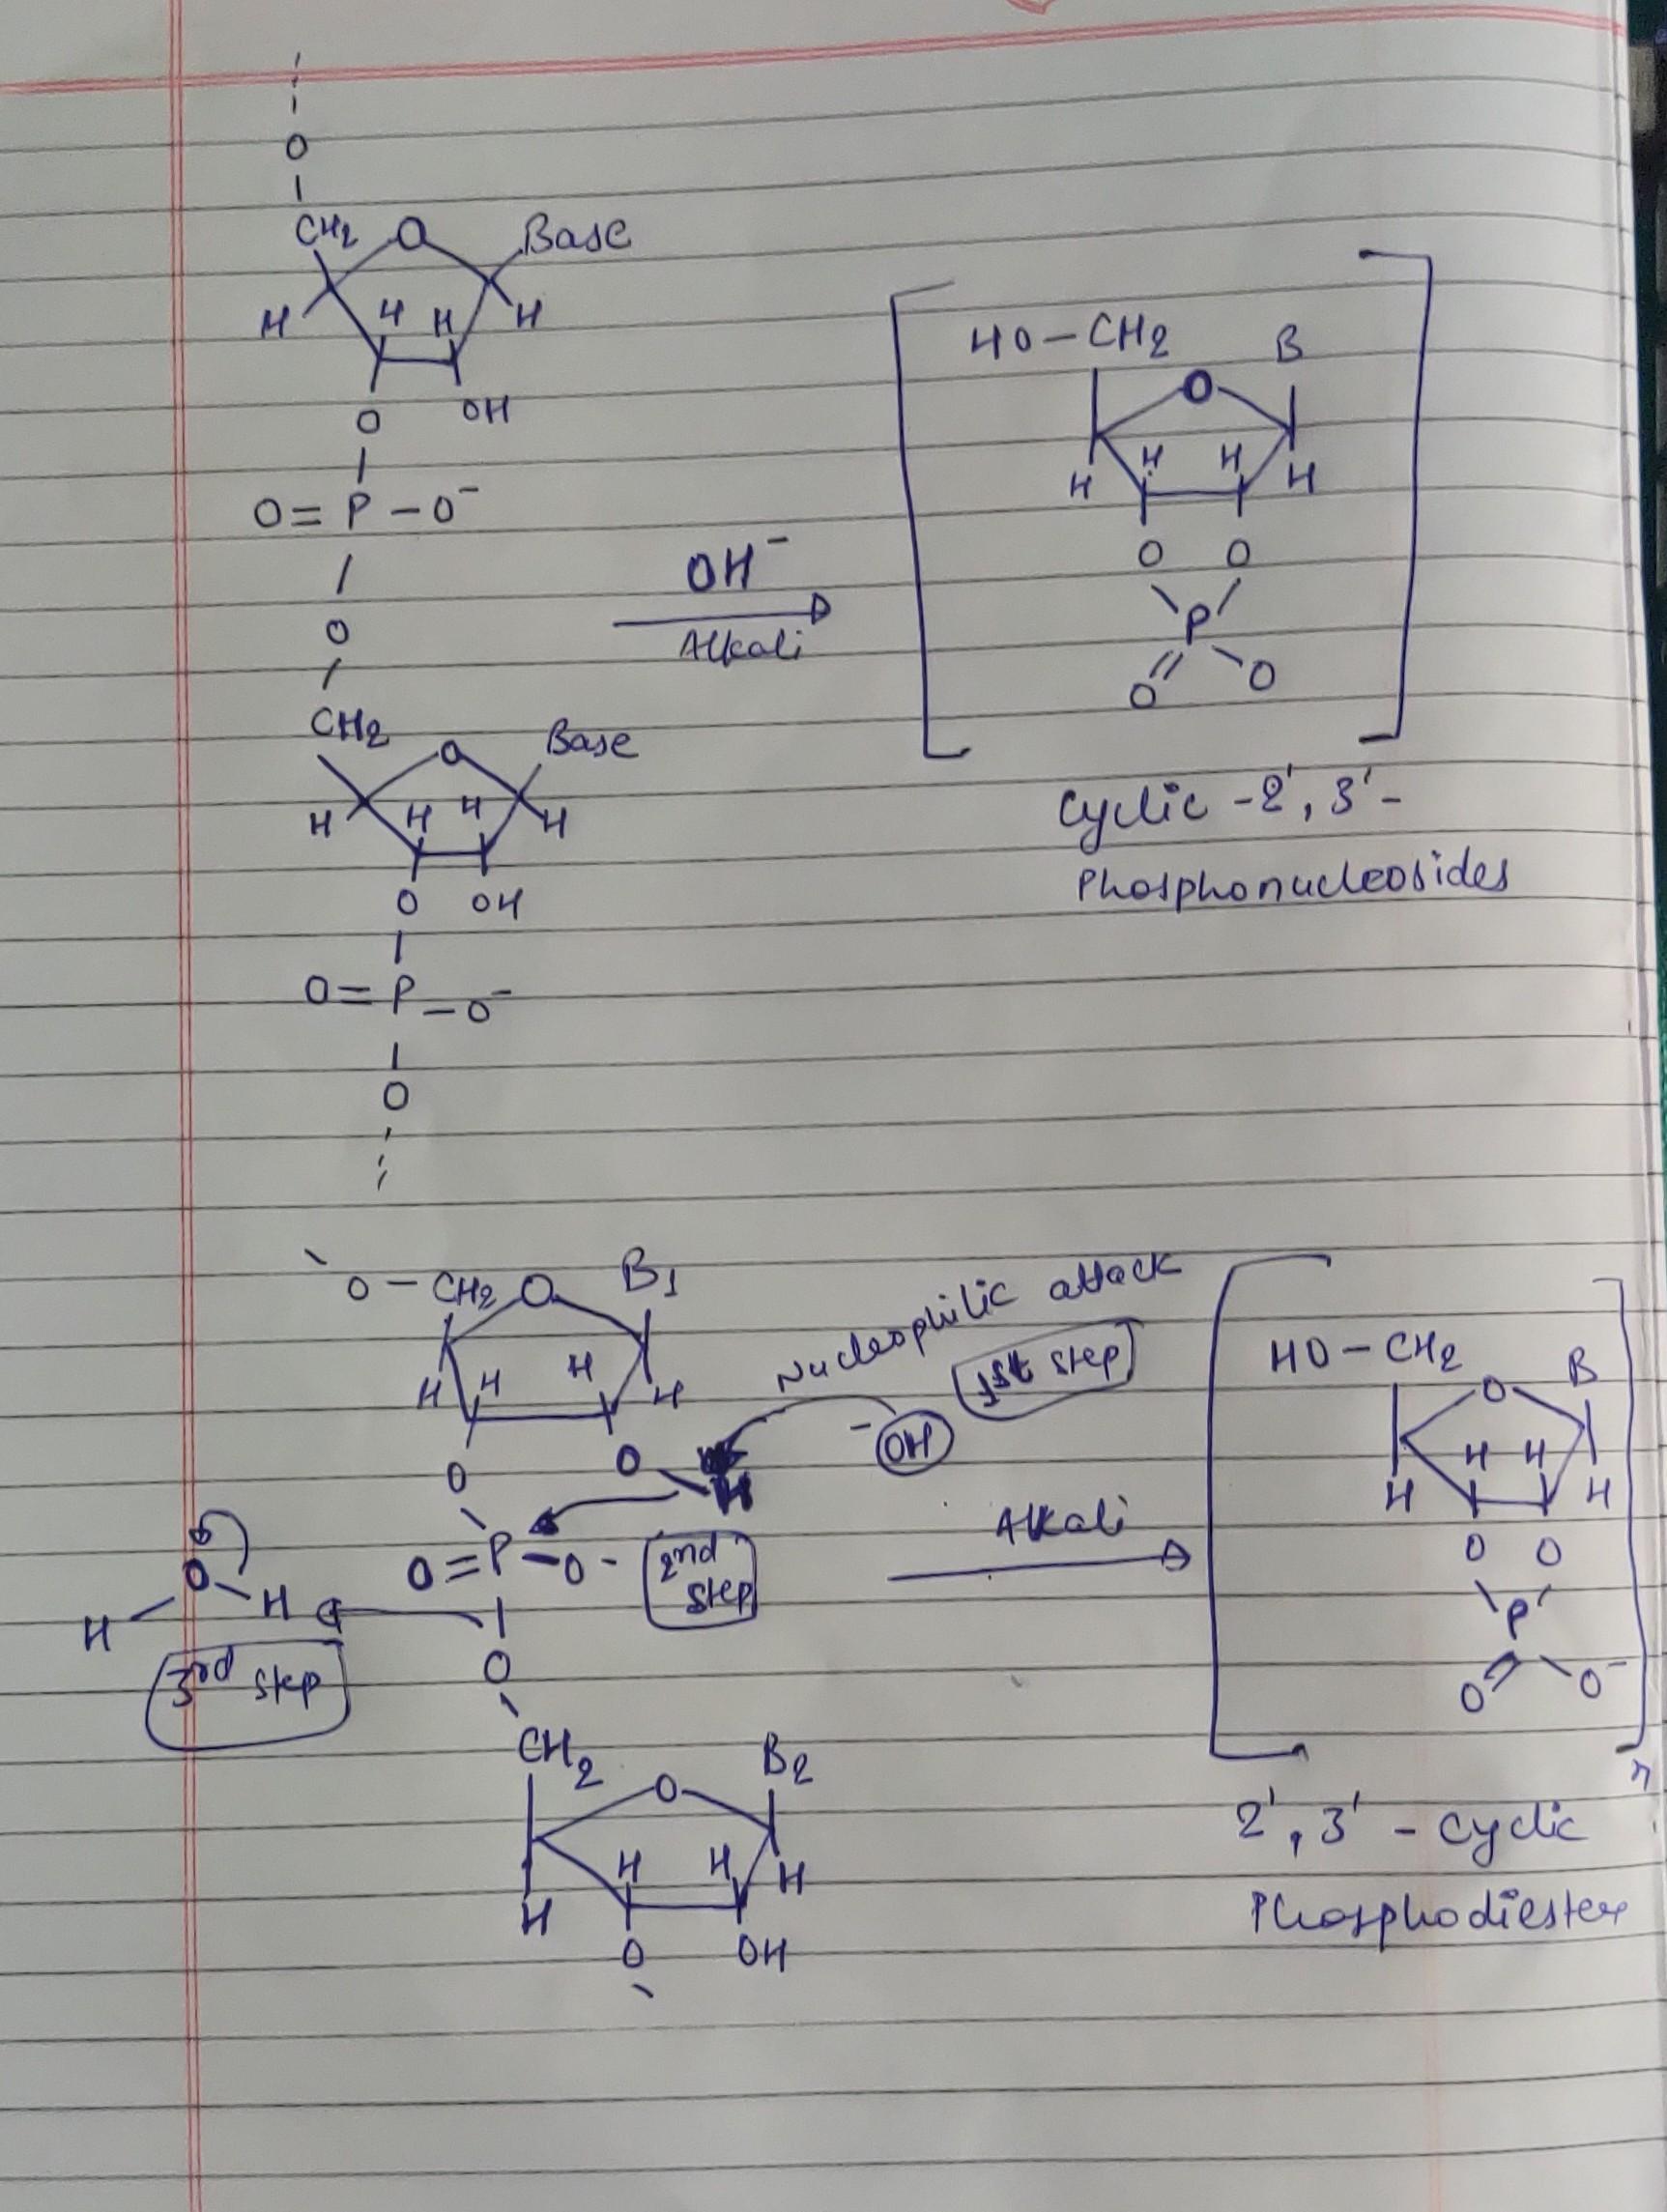 O
CH2 O Base
H H H H
O OH
O=P-O⁻
O
CH2 O Base
H H H H
O OH
O=P-O⁻
O
OH⁻
Alkali
HO-CH2 B
O
H H H H
O O
P
O O
Cyclic -2', 3'-
Phosphonucleosides
O-CH2 O B1
H H H H
O O H
Nucleophilic attack
1st step
⁻OH
O=P-O-
2nd
step
O
H H
3rd step
O
CH2 O B2
H H H H
O OH
Alkali
HO-CH2 O B
H H H H
O O
P
O O⁻
n
2', 3' - cyclic
Phosphodiester